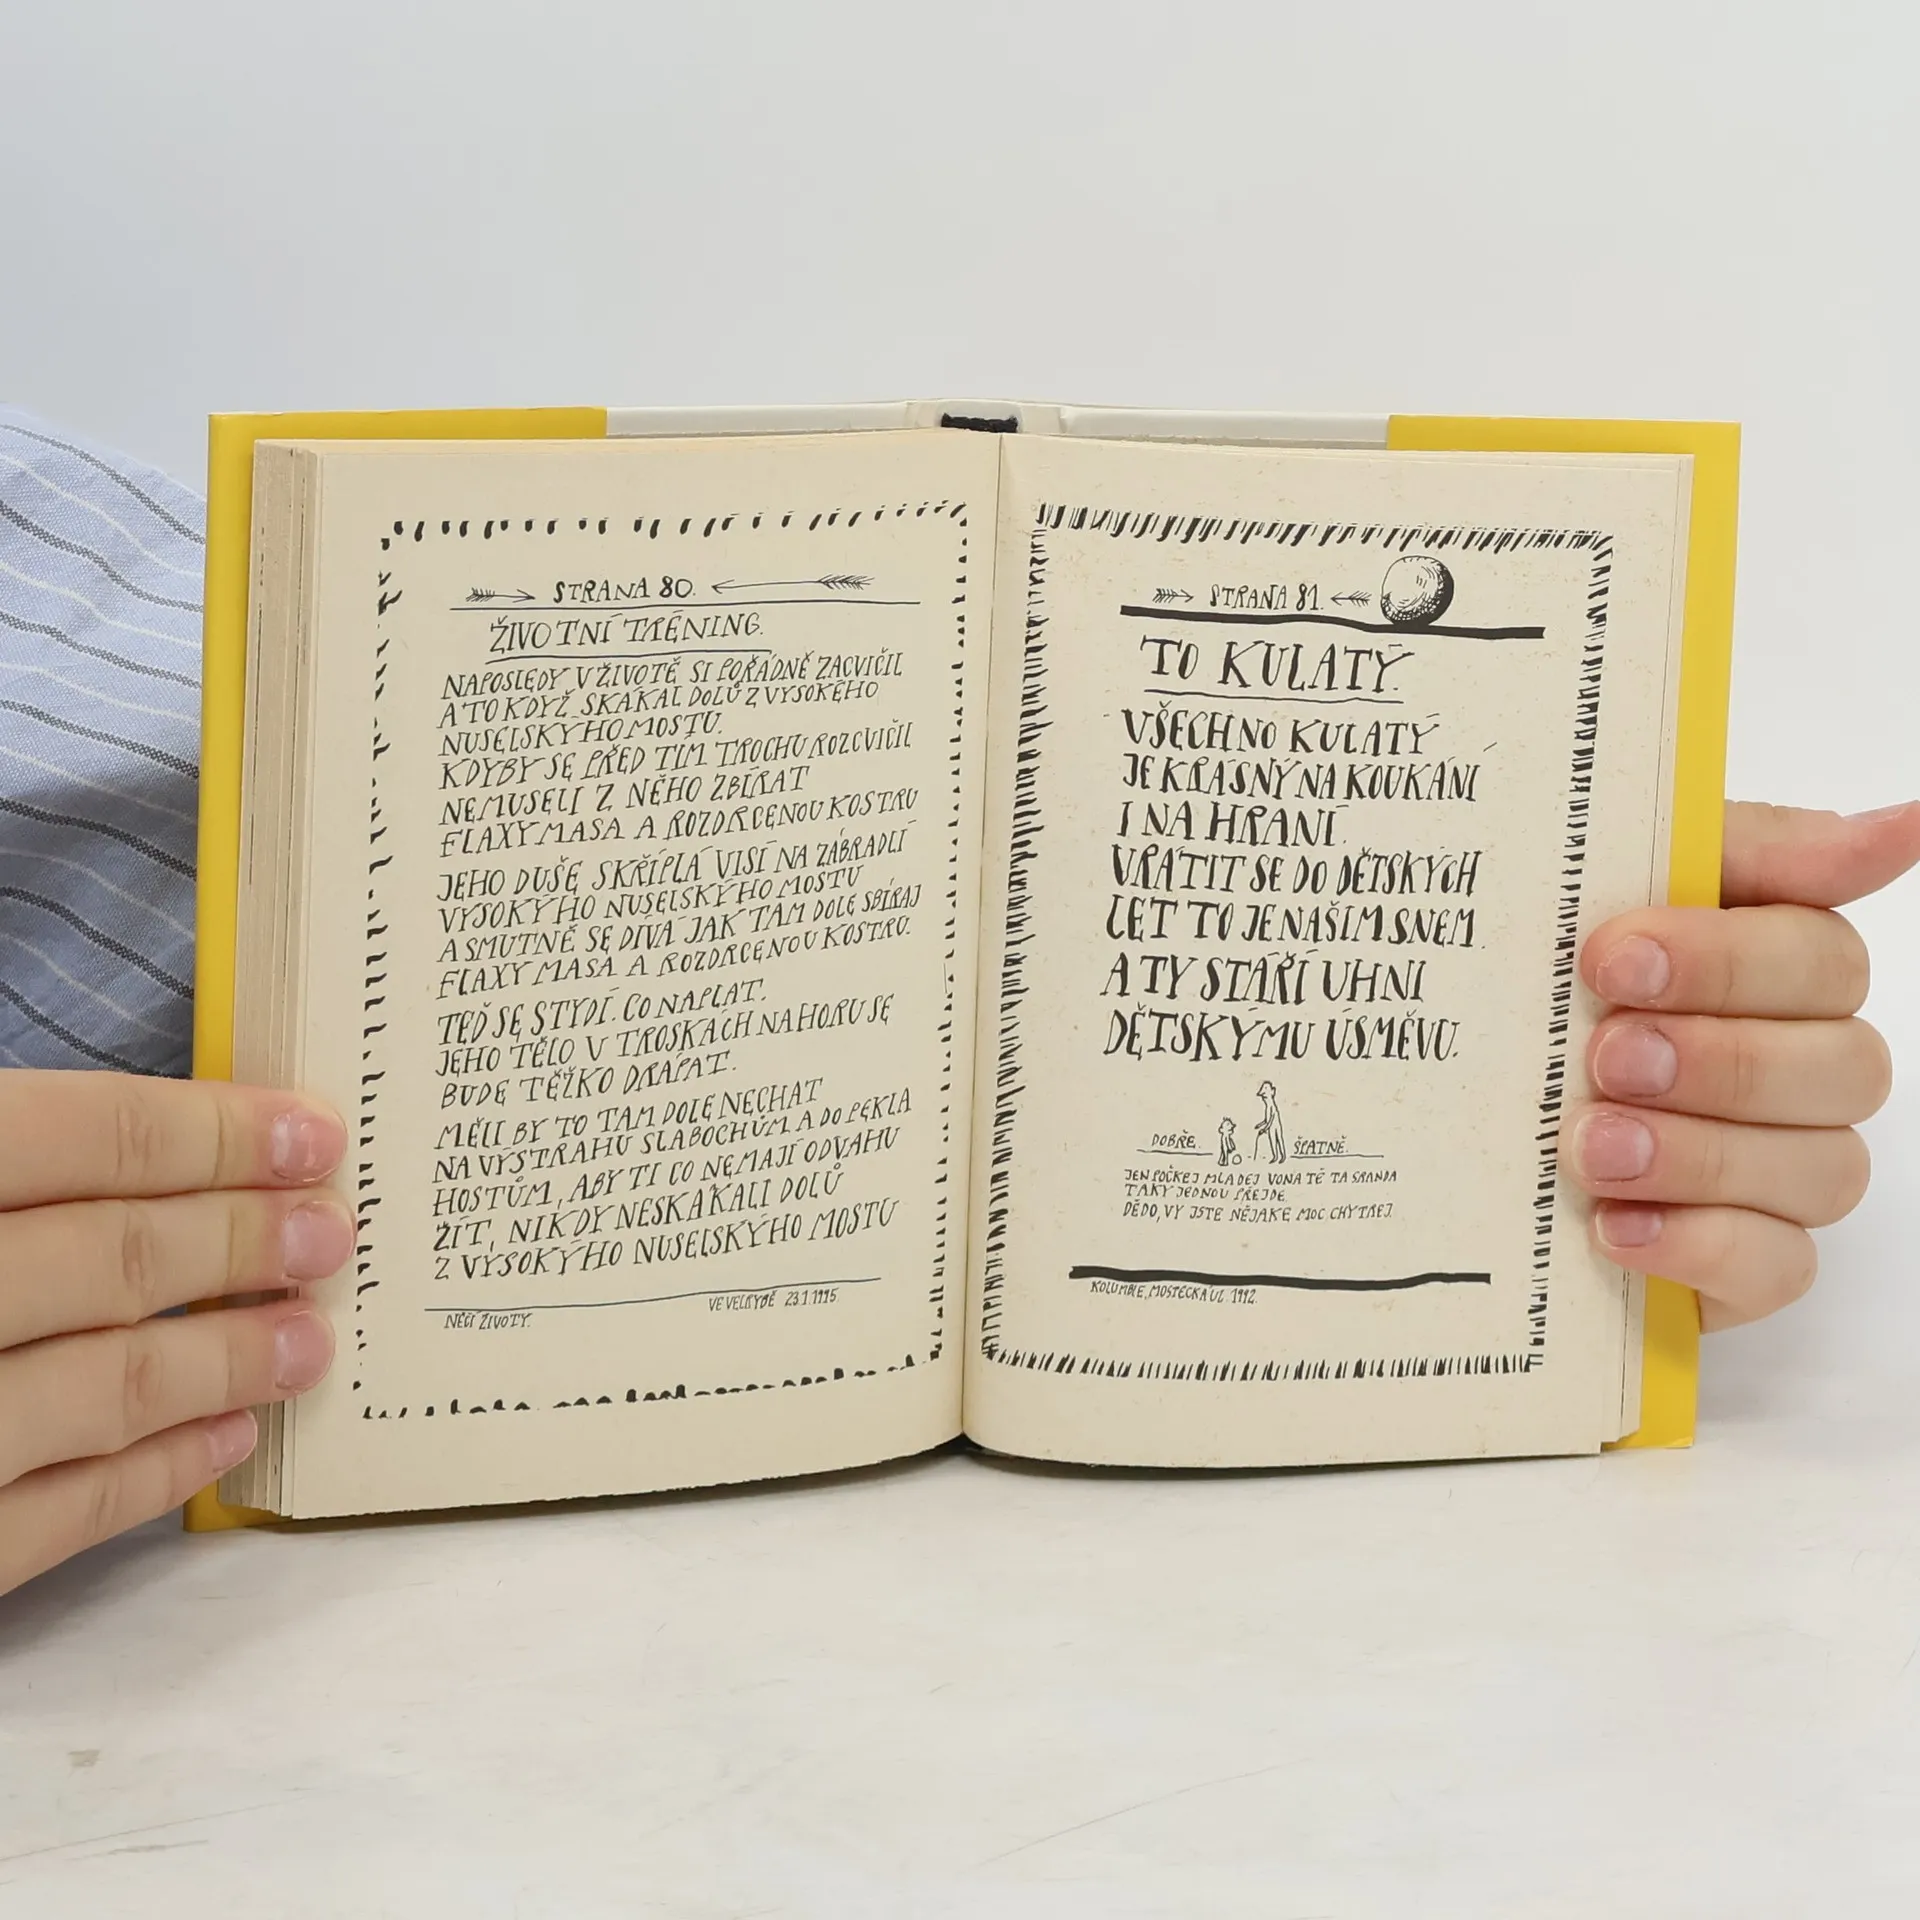 STRANA 80.
ŽIVOTNÍ TRÉNING.
NAPOSLEDY V ŽIVOTĚ SI POŘÁDNĚ ZACVIČIL
A TO KDYŽ SKÁKAL DOLŮ Z VYSOKÉHO
NUSELSKÝHO MOSTU.
KDYBY SE PŘED TÍM TROCHU ROZCVIČIL
NEMUSELI Z NĚHO ZBÍRAT
FLAXY MASA A ROZDRCENOU KOSTRU
JEHO DUŠE SKŘÍPLÁ VISÍ NA ZÁBRADLÍ
VYSOKÝHO NUSELSKÝHO MOSTU
A SMUTNĚ SE DÍVÁ JAK TAM DOLE SBÍRAJ
FLAXY MASA A ROZDRCENOU KOSTRU.
TEĎ SE STYDÍ. CO NAPLAT.
JEHO TĚLO V TROSKÁCH NAHORU SE
BUDE TĚŽKO DRÁPAT.
MĚLI BY TO TAM DOLE NECHAT
NA VÝSTRAHU SLABOCHŮM A DO PEKLA
HOSTŮM, ABY TI CO NEMAJÍ ODVAHU
ŽÍT, NIKDY NESKÁKALI DOLŮ
Z VYSOKÝHO NUSELSKÝHO MOSTU
VE VELRYBĚ 23.1.1995
NĚČÍ ŽIVOTY.
STRANA 81.
TO KULATÝ.
VŠECHNO KULATÝ
JE KRÁSNÝ NA KOUKÁNÍ
I NA HRANÍ.
VRÁTIT SE DO DĚTSKÝCH
LET TO JE NAŠIM SNEM.
A TY STÁŘÍ UHNI
DĚTSKÝMU ÚSMĚVU.
DOBŘE. ŠPATNĚ.
JEN POČKEJ MLADEJ VONA TĚ TA SRANDA
TAKY JEDNOU PŘEJDE.
DĚDO, VY JSTE NĚJAKE MOC CHYTREJ.
KOLUMBIE, MOSTECKÁ UL. 1992.